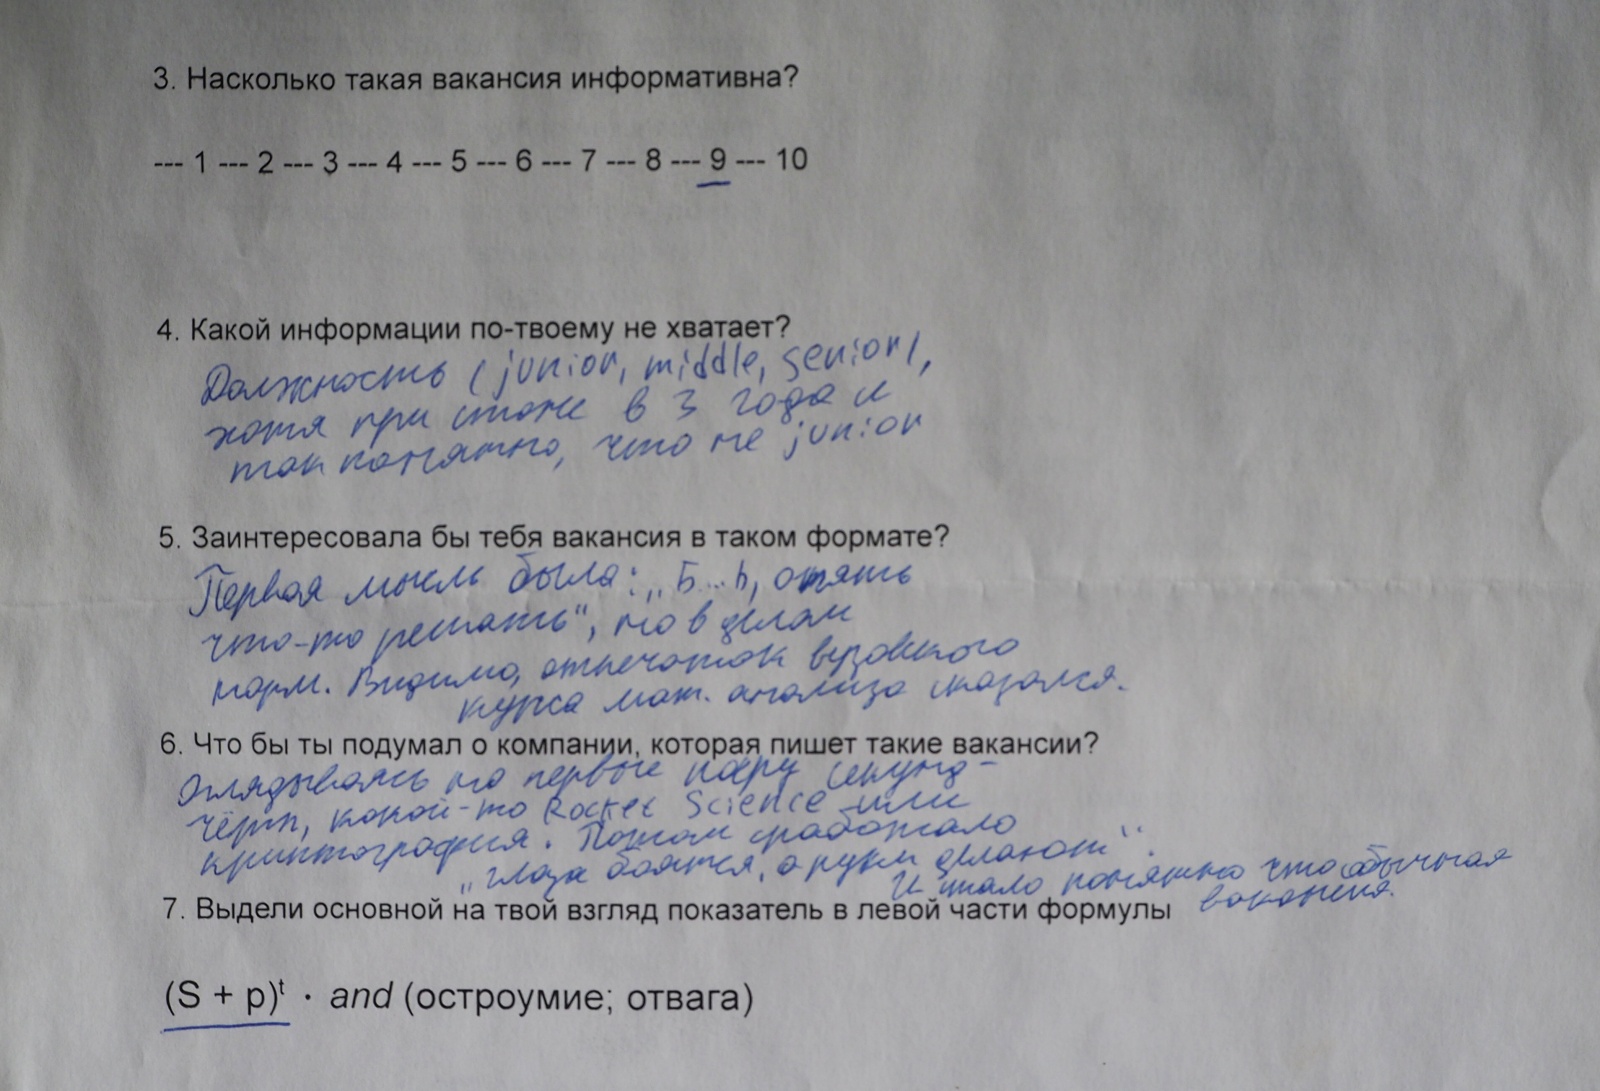 3. Насколько такая вакансия информативна?
--- 1 --- 2 --- 3 --- 4 --- 5 --- 6 --- 7 --- 8 --- 9 --- 10
4. Какой информации по-твоему не хватает?
Должность (junior, middle, senior),
хотя при стаже в 3 года и
так понятно, что не junior
5. Заинтересовала бы тебя вакансия в таком формате?
Первая мысль была: „Б...ь, опять
что-то решать“, но в целом
норм. Видимо, отпечаток вузовского
курса мат. анализа сказался.
6. Что бы ты подумал о компании, которая пишет такие вакансии?
Оглядываясь на первые пару секунд -
чёрт, какой-то Rocket Science или
криптография. Потом сработало
„глаза боятся, а руки делают“.
И стало понятно что обычная
вакансия.
7. Выдели основной на твой взгляд показатель в левой части формулы
(S + p)ᵗ · and (остроумие; отвага)